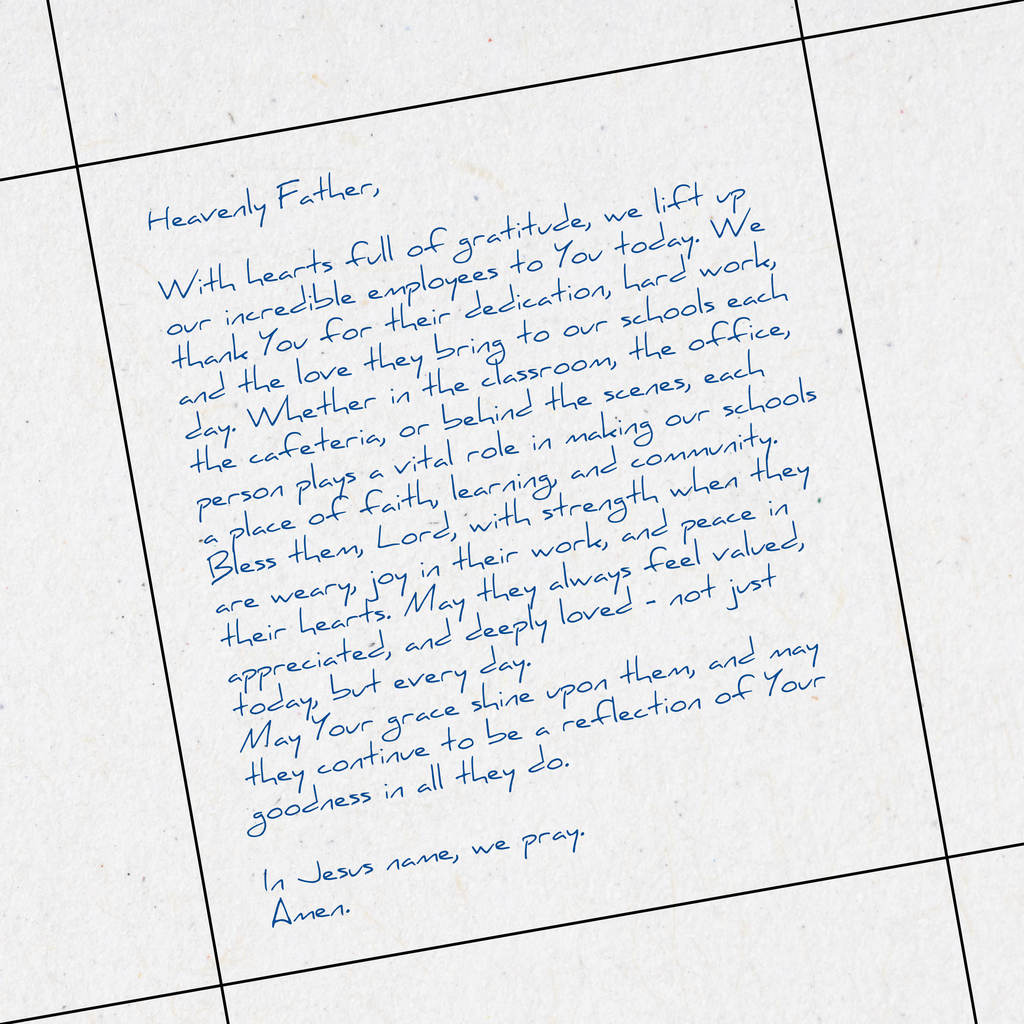 Heavenly Father,
With hearts full of gratitude, we lift up
our incredible employees to You today. We
thank You for their dedication, hard work,
and the love they bring to our schools each
day. Whether in the classroom, the office,
the cafeteria, or behind the scenes, each
person plays a vital role in making our schools
a place of faith, learning, and community.
Bless them, Lord, with strength when they
are weary, joy in their work, and peace in
their hearts. May they always feel valued,
appreciated, and deeply loved - not just
today, but every day.
May Your grace shine upon them, and may
they continue to be a reflection of Your
goodness in all they do.
In Jesus name, we pray.
Amen.